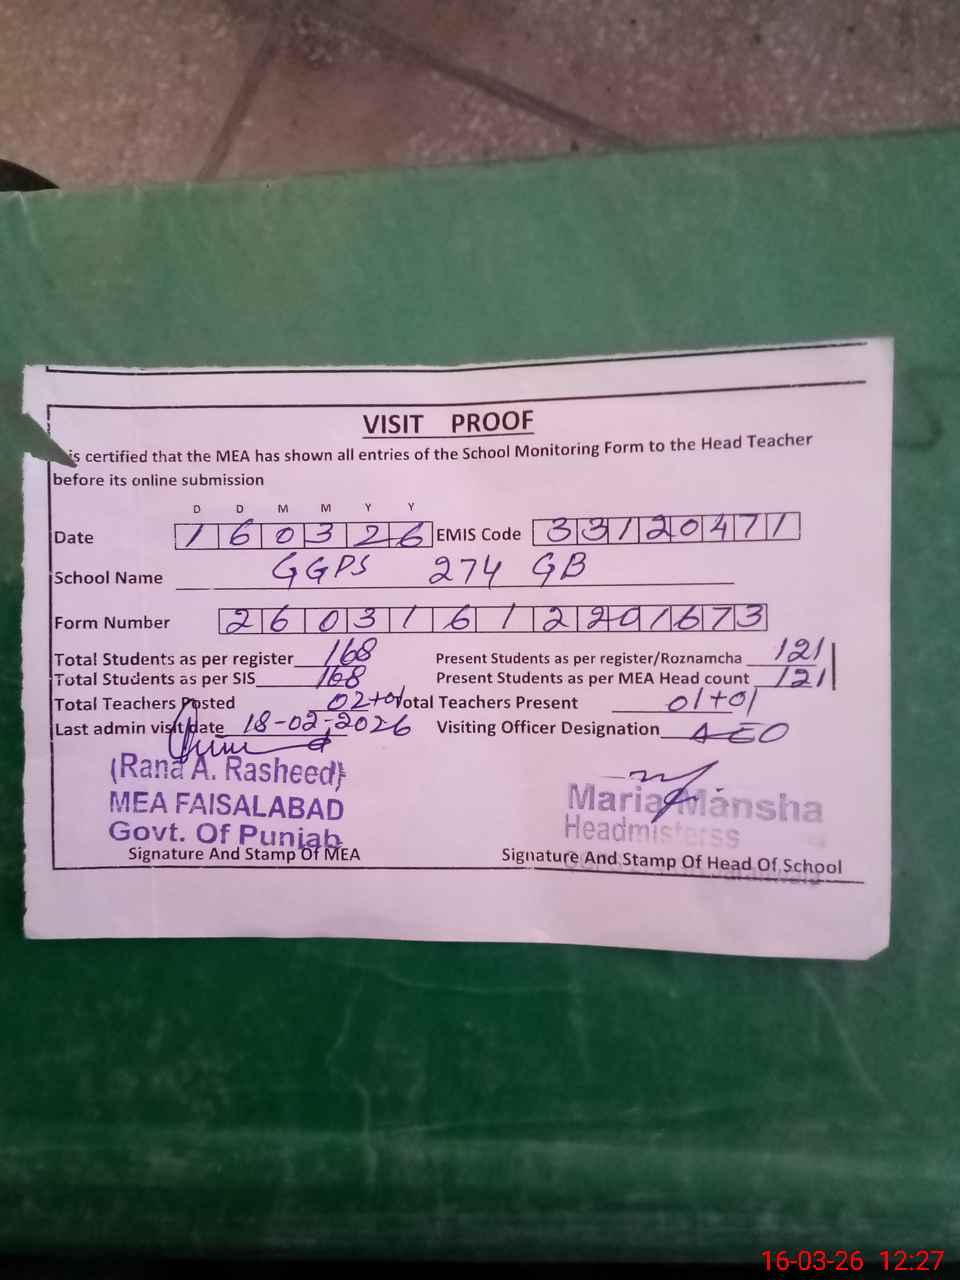 VISIT PROOF
is certified that the MEA has shown all entries of the School Monitoring Form to the Head Teacher
before its online submission
D D M M Y Y
Date 160326 EMIS Code 33120471
School Name GGPS 274 GB
Form Number 26031612201673
Total Students as per register 168 Present Students as per register/Roznamcha 121
Total Students as per SIS 168 Present Students as per MEA Head count 121
Total Teachers Posted 02+01 Total Teachers Present 01+01
Last admin visit date 18-02-2026 Visiting Officer Designation AEO
(Rana A. Rasheed) Maria Mansha
MEA FAISALABAD Headmisterss
Govt. Of Punjab
Signature And Stamp Of MEA Signature And Stamp Of Head Of School
16-03-26 12:27